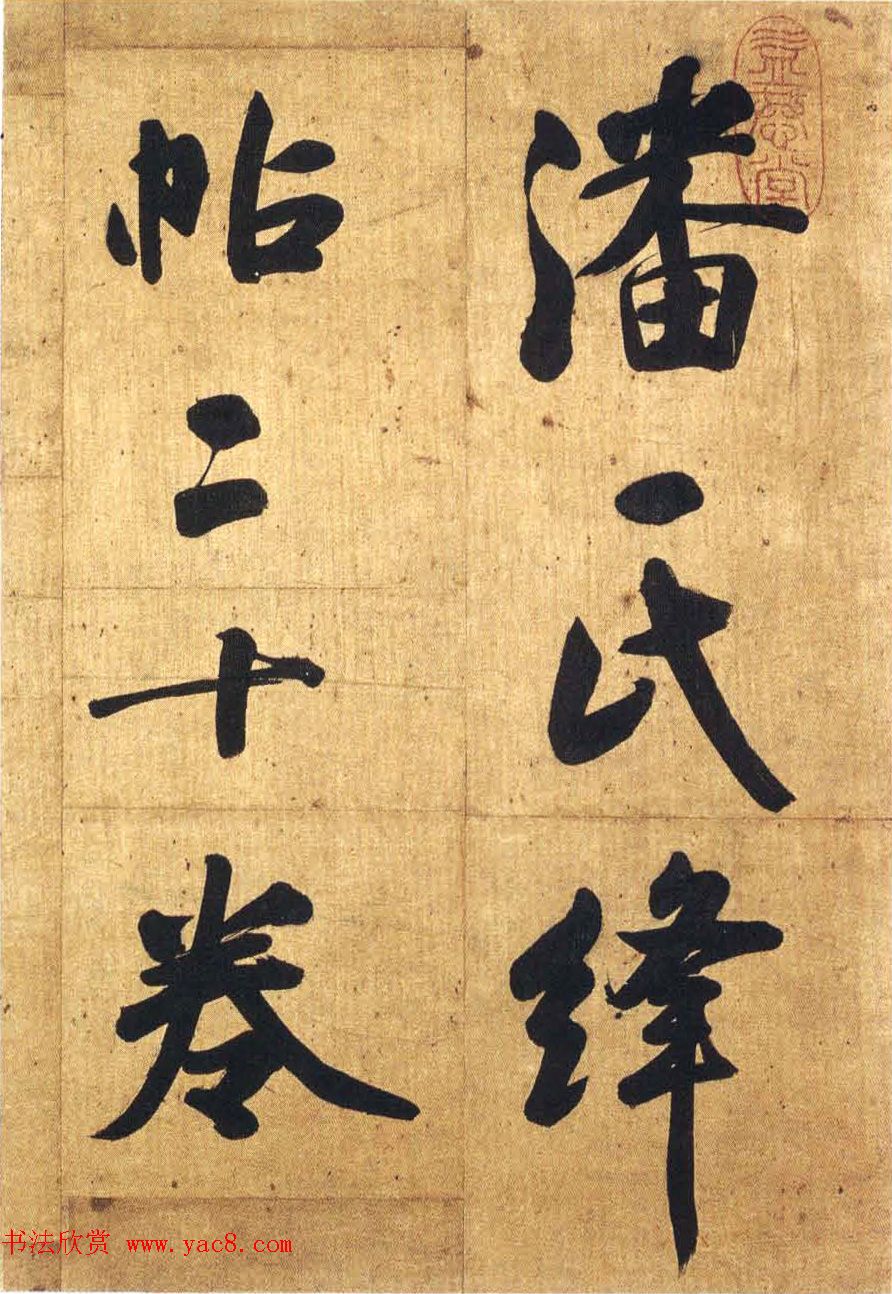 潘氏绛
帖二十卷
书法欣赏 www.yac8.com